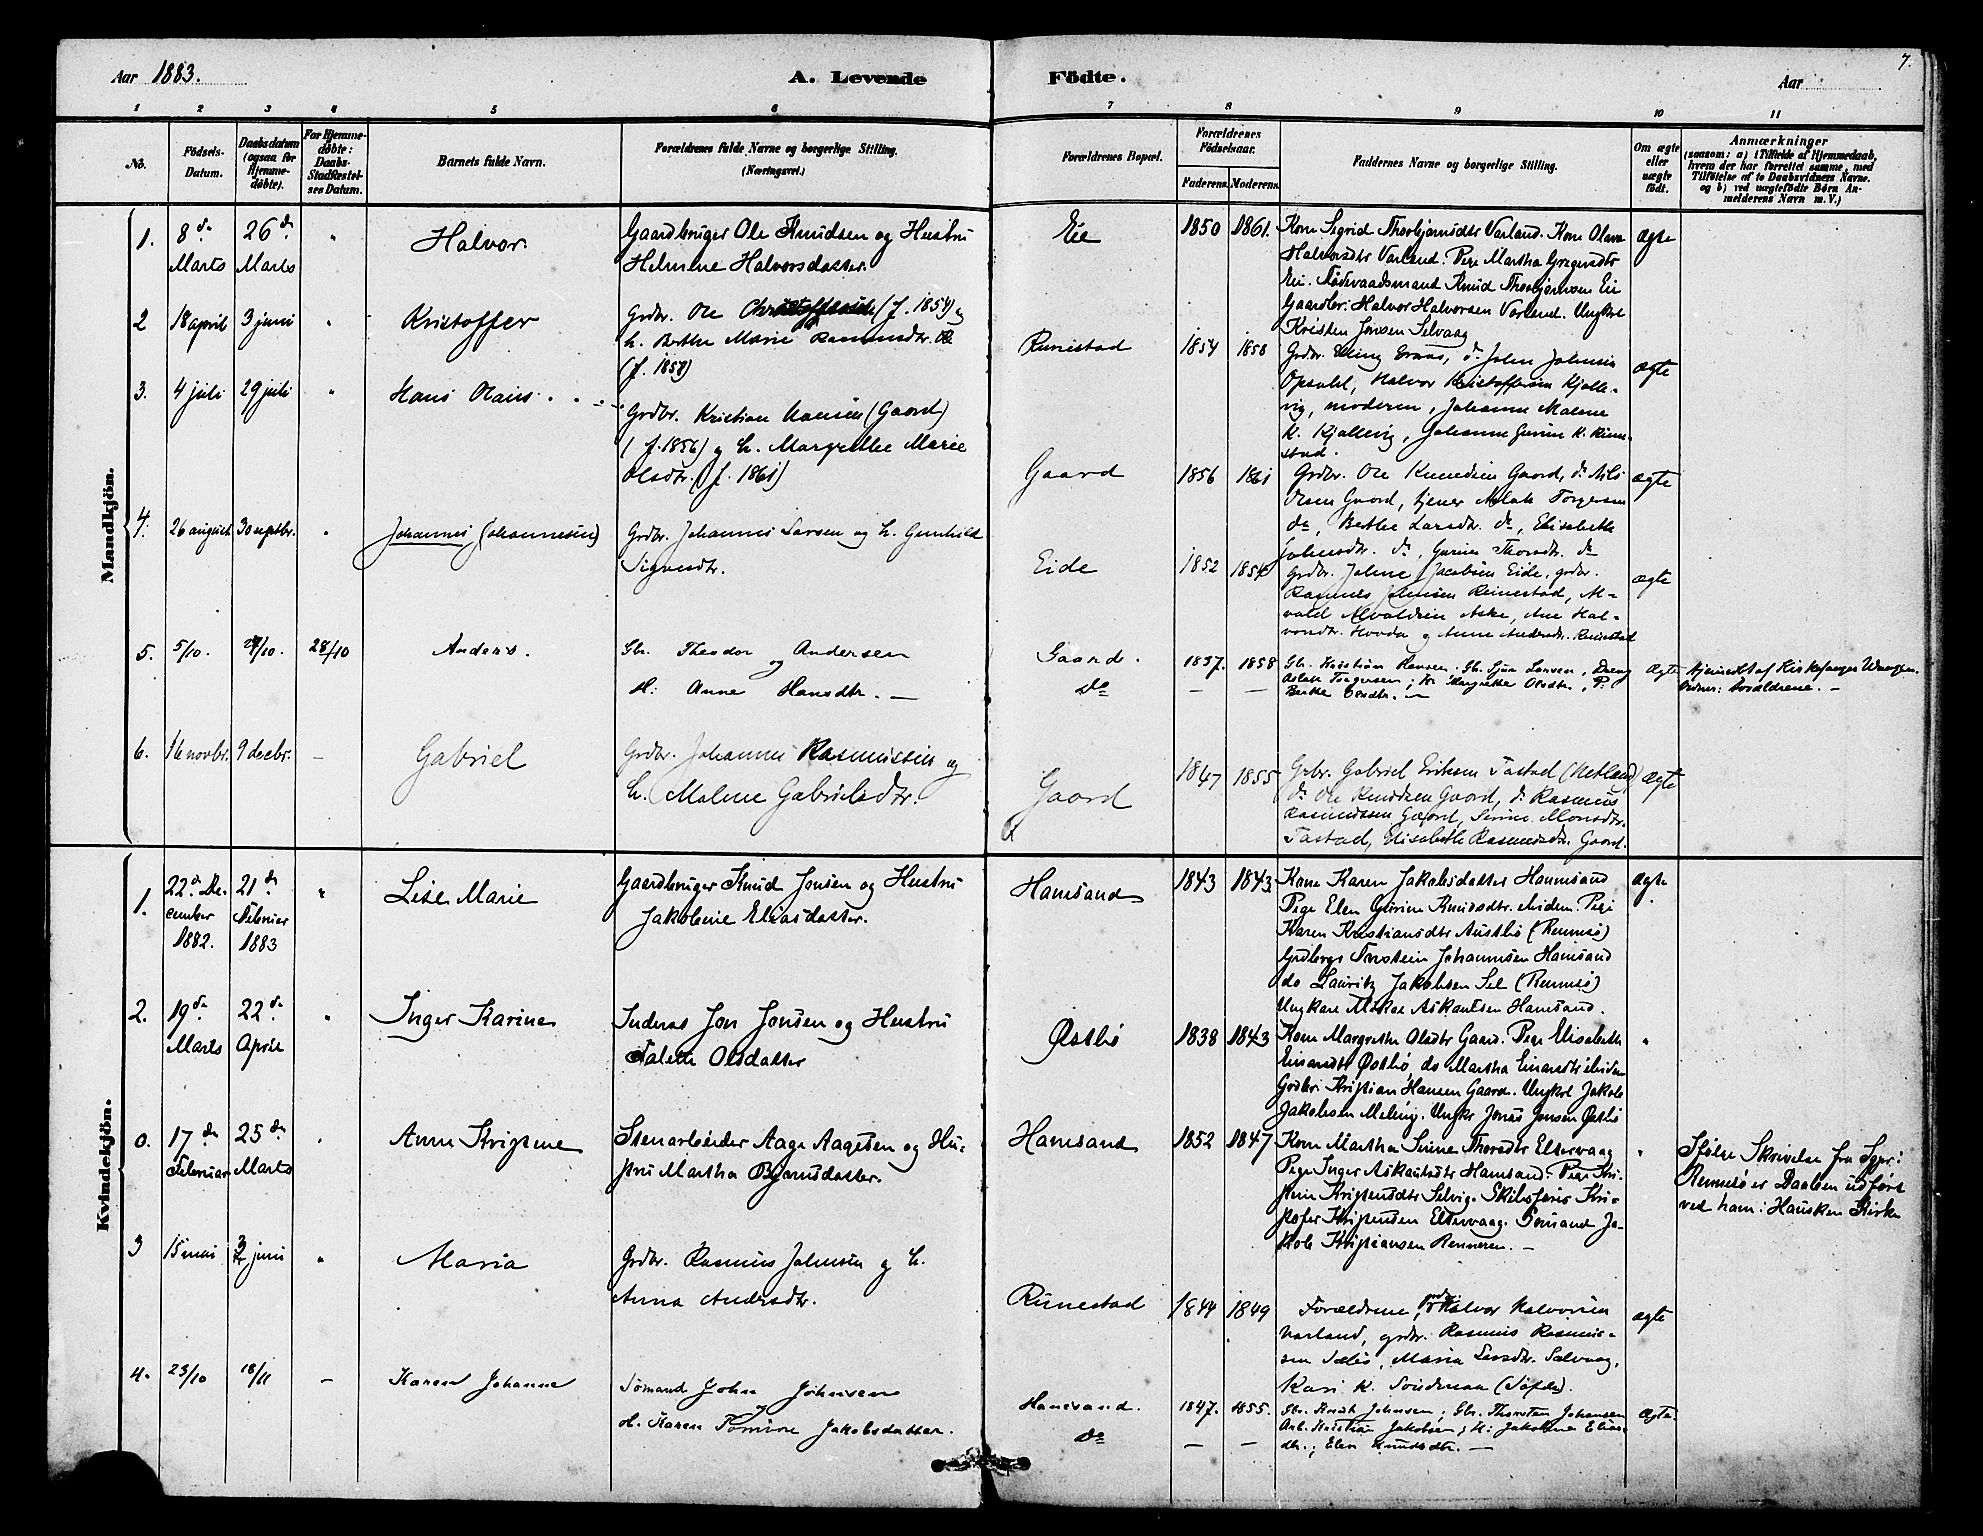 Aar 1883.
A. Levende Födte.
Aar
7.
1 2 3 4 5 6 7 8 9 10 11
No.
Födsels-
Datum.
Daabsdatum
(ogsaa for
Hjemme-
döbte).
For Hjemme-
döbte:
Daabs-
Stadfæstel-
ses Datum.
Barnets fulde Navn.
Forældrenes fulde Navne og borgerlige Stilling.
(Næringsvei.)
Forældrenes Bopæl.
Forældrenes
Födselsaar.
Faderens. Moderens.
Faddernes Navne og borgerlige Stilling.
Om ægte
eller
uægte
født.
Anmærkninger
(saasom: a) i Tilfælde af Hjemmedaab,
hvem der har forrettet samme, med
Tilföielse af to Daabsvidners Navne.
og b) ved uægtefödte Börn An-
melderens Navn m. V.)
Mandkjön.
1. 8de Marts
26de Marts
"
Halvor
Gaardbruger Ole Knudsen og Hustru
Helmine Halvorsdatter.
Eie
1850 1861.
Kone Sigrid Thorbjørnsdtr Varland. Kone Olava
Halvorsdtr Varland. Pige Martha Gregersdtr
Eie. Knud Thorbjørnsen Eie
Gaardbr. Halvor Halvorsen Varland. Ungkarl
Kristen Jonsen Selvaag
ægte
2 18 april 3 juni "
Kristoffer
Grdbr. Ole (f. 1854) og
h. Berthe Marie Rasmusdtr.
(f. 1858)
Runestad
1854 1858
Grdbr. Elling do John Johnsen
Opsahl, Halvor Kristoffersen Kjølle-
vig, moderen, Johanne Malene
K. Kjøllevig, Johanne Gurine K. Rune-
stad.
ægte
3. 4 juli 29 juli "
Hans Olaus
Grdbr. Kristian Hansen (Gaard)
(f. 1856) og h. Margrethe Marie
Olsdtr. (f. 1861)
Gaard
1856 1861
Grdbr. Ole Knudsen Gaard, do Nils
Olsen Gaard, tjener Aslak Torgersen
do, Berthe Larsdtr. do, Elisabeth
Johnsdtr. do, Gurine Thorsdtr. do
ægte
4. 26 august 30 septbr. "
Johannes (Johannesen)
Grdbr. Johannes Larsen og h. Gunhild
Sigvesdtr.
Eide
1852 1854
Grdbr. Johne Jacobsen Eide, grdbr.
Rasmus Johnsen Rennestad,
Aske, Ane Hal-
vorsdtr. Hovda og Anne Andersdtr. Runestad
ægte
5. 5/10. /10. 28/10
Anders.
Gbr. Theodor Andersen
og
H: Anne Hansdtr. —
Gaard.
do
1857. 1858
Gbr. Kristian Hansen. Gbr. Sjur Larsen, Dreng
Aslak Torgersen; K: Margrethe Olsdtr. P.
Berthe Olsdtr. —
Ægte
Hjemmedøbt af Kirkesanger
Forældrene. —
6. 16 novbr. 9 decbr. —
Gabriel
Grdbr. Johannes Rasmussen og
h. Malene Gabrielsdtr.
Gaard
1847 1855.
Grbr. Gabriel Eriksen Tastad (Retland)
do Ole Knudsen Gaard, do Rasmus
Rasmussen Gaard, Serine Monsdtr.
Tastad, Elisabeth Rasmusdtr. Gaard.
ægte
Kvindekjön.
1. 22de De-
cember
1882.
21de
Februar
1883
"
Lise Marie
Gaardbruger Knud Jonsen og Hustru
Jakobine Eliasdatter.
Hanesand
1843 1843
Kone Karen Jakobsdatter Hanesand
Pige Elen Gurine Knudsdtr ibidem. Pige
Karen Kristiansdtr Austbø (Rennesø)
Grdbrgr Torstein Johannesen Hanesand
do Lauritz Jakobsen Sel (Rennesø)
Ungkarl Askautsen Hanesand.
ægte.
2. 19de
Marts
22de
April
"
Inger Karine
Inderst Jon Jonsen og Hustru
Talette Olsdatter
Østbø
1838 1843
Kone Margrethe Olsdtr Gaard. Pige Elisabeth
Einarsdtr Østbø, do Martha Einarsdtr ibidem
Grdbr. Kristian Hansen Gaard. Ungkrl Jakob
Jakobsen Meling. Ungkr Jonas Jonsen Østbø
"
0. 17de
Februar
25de
Marts
"
Anne Kristine
Stenarbeider Aage Aagesen og Hu-
stru Martha Bjørnsdatter.
Hanesand
1852 1847
Kone Martha Serine Thorsdtr Eltervaag
Pige Inger Askautsdtr Hanesand. Pige Kri-
stine Kristensdtr Selvig. Skibsfører Kri-
stofer Kristensen Eltervaag. Sømand Ja-
kob Kristiansen Renneren. —
"
Ifølge Skrivelse fra Sgpr:
Rennesø er Daaben udført
ved ham i Hausken Kirke
3 15 mai 3 juni "
Maria
Grdbr. Rasmus Johnsen og h.
Anna Andersdtr.
Runestad
1844 1849
Forældrene, grdbr. Halvor Halvorsen
Varland, grdbr. Rasmus Rasmus-
sen Sælø, Maria Larsdtr. Selvaag,
Kari K. Sondenaa
ægte
4. 23/10 18/11 —
Karen Johanne
Sømand John Johnsen
og
H. Karen Tomine Jakobsdatter.
Hanesand.
do
1847. 1855.
Gbr. Knud Johnsen; Gbr. Thorsten Johansen
Arb. Kristian Jakobsen; K: Jakobine Elias-
dtr.; Elen Knudsdtr. —
Ægte.